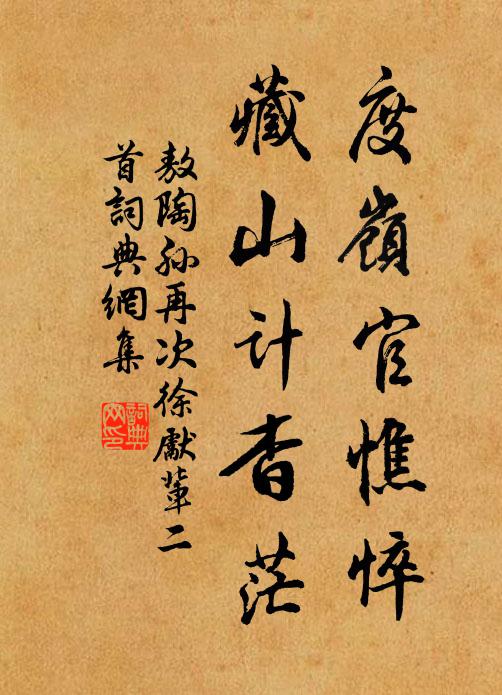 度嶺官憔悴
藏山计杳茫
敖陶孫再次徐獻輩二
首詞典網集
詞典
网印